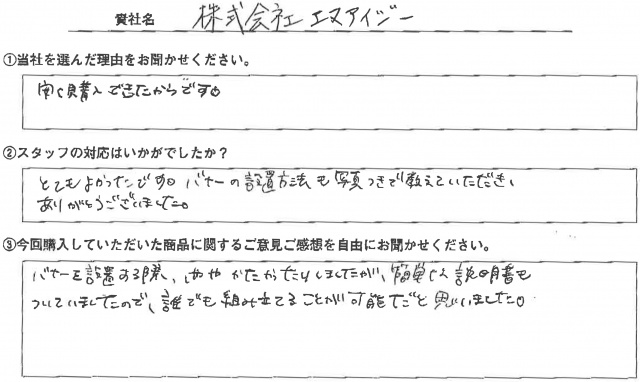 貴社名 株式会社 エヌアイシー
①当社を選んだ理由をお聞かせください。
安く購入できたからです。
②スタッフの対応はいかがでしたか？
とてもよかったです。バナーの設置方法も写真つきで教えていただき、
ありがとうございました。
③今回購入していただいた商品に関するご意見ご感想を自由にお聞かせください。
バナーを設置する際、しややかたかったりしましたが、簡単な説明書も
ついていましたので、誰でも組み立てることが可能だと思いました。